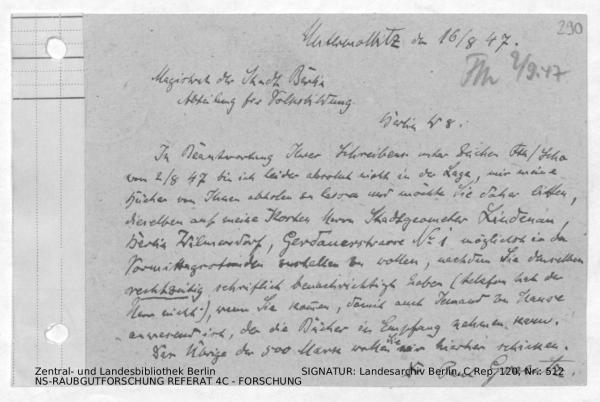 290
Unterwellitz den 16/8 47.
2/9.47
Magistrat der Stadt Berlin
Abteilung für Volksbildung
Berlin W 8.
In Beantwortung Ihres Schreibens unter Zeichen
vom 2/8 47 bin ich leider absolut nicht in der Lage, mir meine
Bücher von Ihnen abholen zu lassen und möchte Sie daher bitten,
dieselben auf meine Kosten Herrn Stadtgeometer Lindenau,
Berlin Wilmersdorf, Gerdauerstrasse No 1 möglichst in den
Vormittagsstunden zustellen zu wollen, nachdem Sie denselben
rechtzeitig schriftlich benachrichtigt haben (Telefon hat der
Herr nicht!), wann Sie kommen, damit auch Jemand zu Hause
anwesend ist, der die Bücher in Empfang nehmen kann.
Das Übrige der 500 Mark wollen Sie mir hierher schicken.
Zentral- und Landesbibliothek Berlin
SIGNATUR: Landesarchiv Berlin, C Rep. 120, Nr.: 512
NS-RAUBGUTFORSCHUNG REFERAT 4C - FORSCHUNG